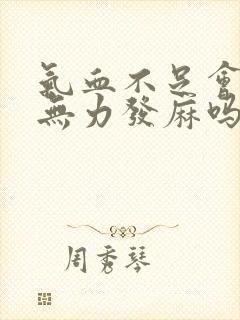 氣血不足會
無力發麻嗎
周秀琴